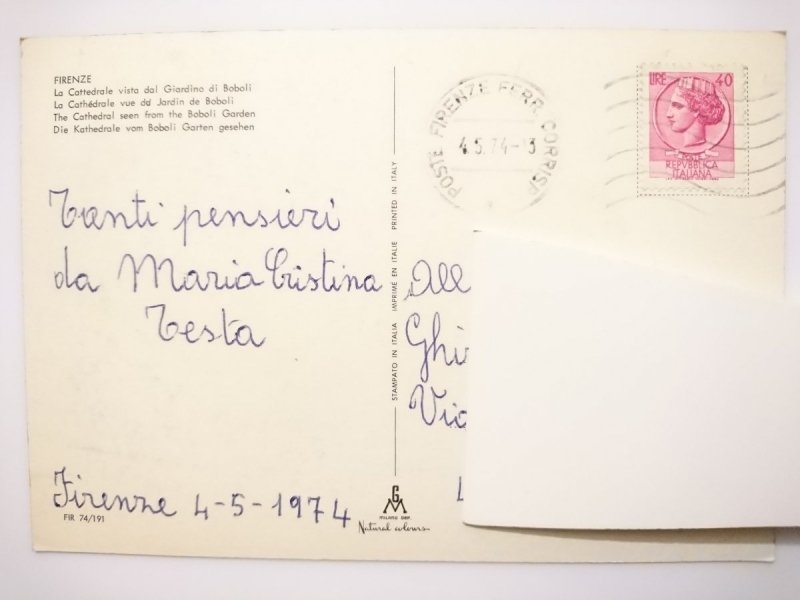 FIRENZE
La Cattedrale vista dal Giardino di Boboli
La Cathédrale vue dd Jardin de Boboli
The Cathedral seen from the Boboli Garden
Die Kathedrale vom Boboli Garten gesehen
Tanti pensieri
da Maria Cristina
Testa
Firenze 4-5-1974
FIR 74/191
STAMPATO IN ITALIA IMPRIME EN ITALIE PRINTED IN ITALY
GM
MILANO DEP.
Natural colours
POSTE FIRENZE FERR. CORRISP
4.5.74-13
LIRE 40
POSTE
REPVBBLICA
ITALIANA
All
Ghi
Via